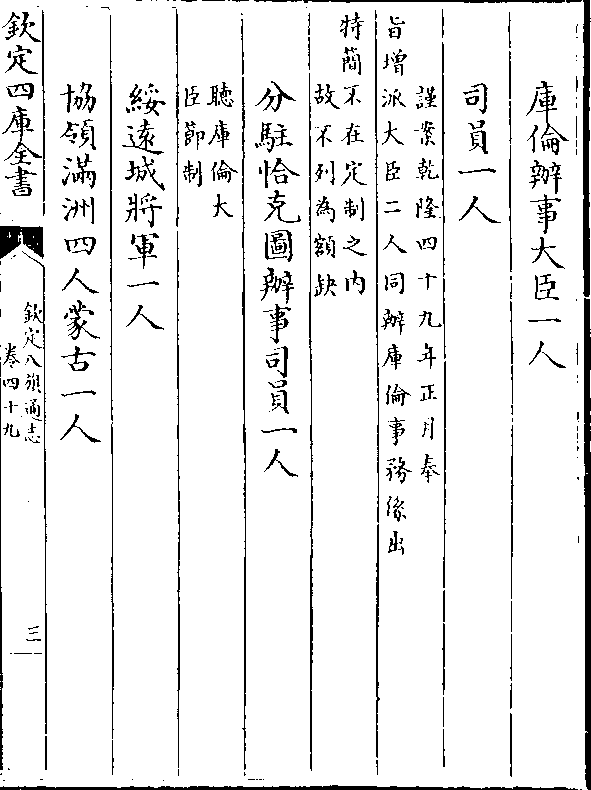 庫倫辦事大臣一人
司員一人
謹案乾隆四十九年正月奉
旨增派大臣二人同辦庫倫事務係出
特簡不在定制之内
故不列為額缺
分駐恰克圖辦事司員一人
聽庫倫大
臣節制
綏逺城將軍一人
協領滿洲四人蒙古一人
欽定四庫全書
欽定八旗通志
卷四十九
三